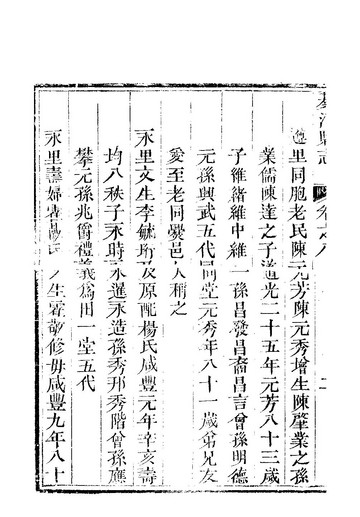 綦江縣志 卷之八 二
遵里同胞老民陳元芳陳元秀增生陳肇業之孫
業儒陳達之子道光二十五年元芳八十三歲
子維緒維中維一孫昌發昌裔昌言曾孫明德
元孫興武五代同堂元秀年八十一歲弟兄友
愛至老同爨邑人稱之
永里文生李毓珩及原配楊氏咸豐元年辛亥壽
均八秩子永時永暹永造孫秀邢秀階曾孫應
攀元孫兆爵禮義爲田一堂五代
永里壽婦 氏 生 敬修母咸豐九年八十